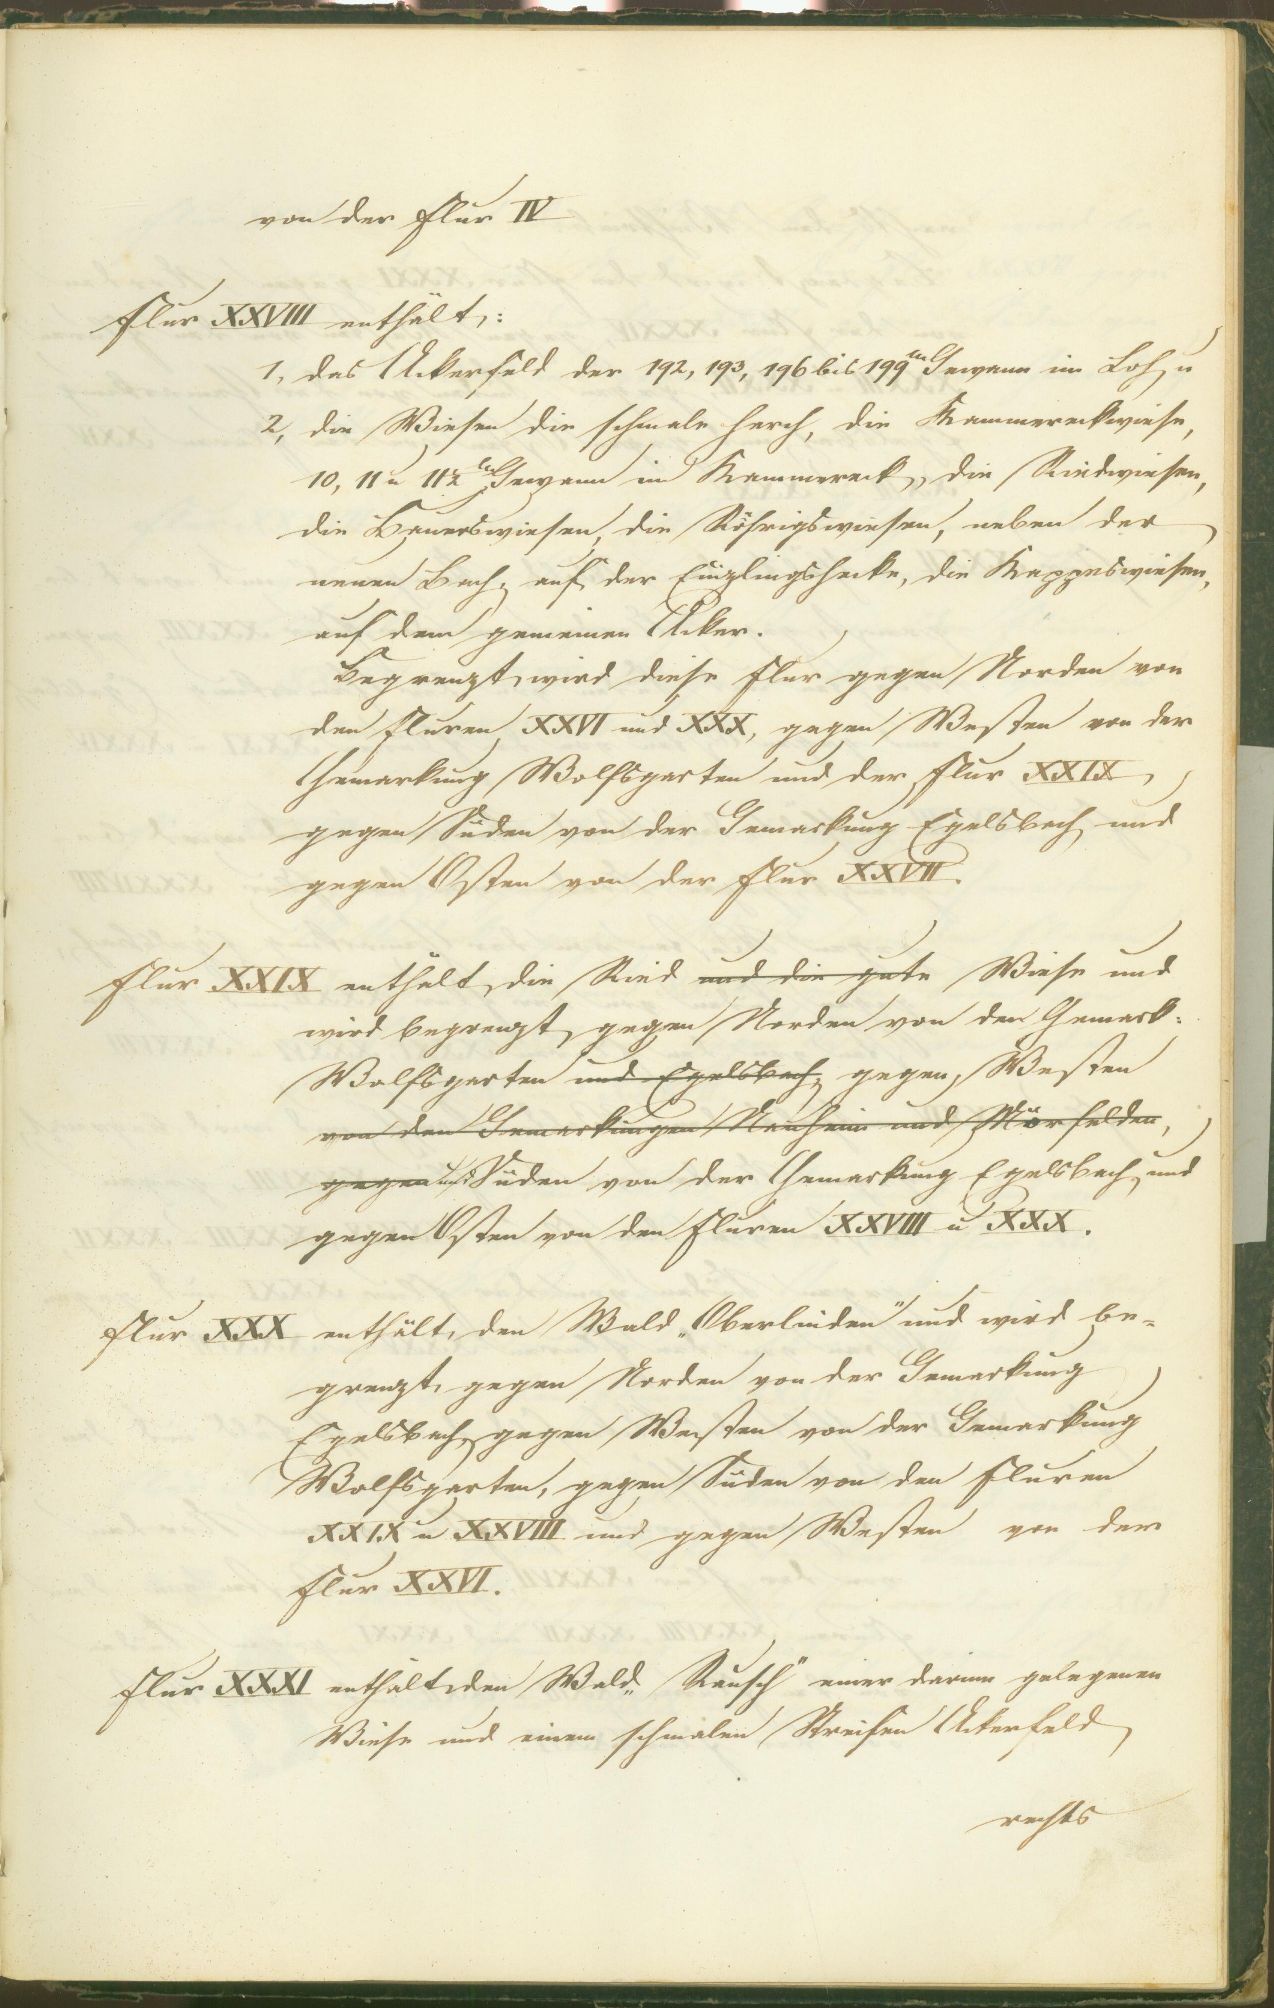 von der Flur IV
Flur XXVIII enthält:
1, das Ackerfeld der 192, 193, 196 bis 199ten Gewann im Loh, u
2, die Wiesen die schmale Harch, die Kammereckwiese,
10, 11 u 112te Gewann im Kammereck, die Riedwiesen,
die Bauerswiesen, die Röhrigswiesen, neben der
neuen Bach, auf der hecke, die Kappeswiesen,
auf dem gemeinen Acker.
Begrenzt wird diese Flur gegen Norden von
den Fluren XXVI und XXX, gegen Westen von der
Gemarkung Wolfsgarten und der Flur XXIX,
gegen Süden von der Gemarkung Egelsbach und
gegen Osten von der Flur XXVII.
Flur XXIX enthält die Ried und die gute Wiese und
wird begrenzt, gegen Norden von den Gemark:
Wolfsgarten und Egelsbach, gegen Westen
von den Gemarkungen Nauheim und Mörfelden,
gegen und Süden von der Gemarkung Egelsbach und
gegen Osten von den Fluren XXVIII u XXX.
Flur XXX enthält, den Wald „Oberlinden" und wird be-
grenzt, gegen Norden von der Gemarkung
Egelsbach, gegen Westen von der Gemarkung
Wolfsgarten, gegen Süden von den Fluren
XXIX u XXVIII und gegen Westen von der
Flur XXVI.
Flur XXXI enthält, den Wald „Reusch" einer darinn gelegenen
Wiese und einem schmalen Streifen Ackerfeld,
rechts